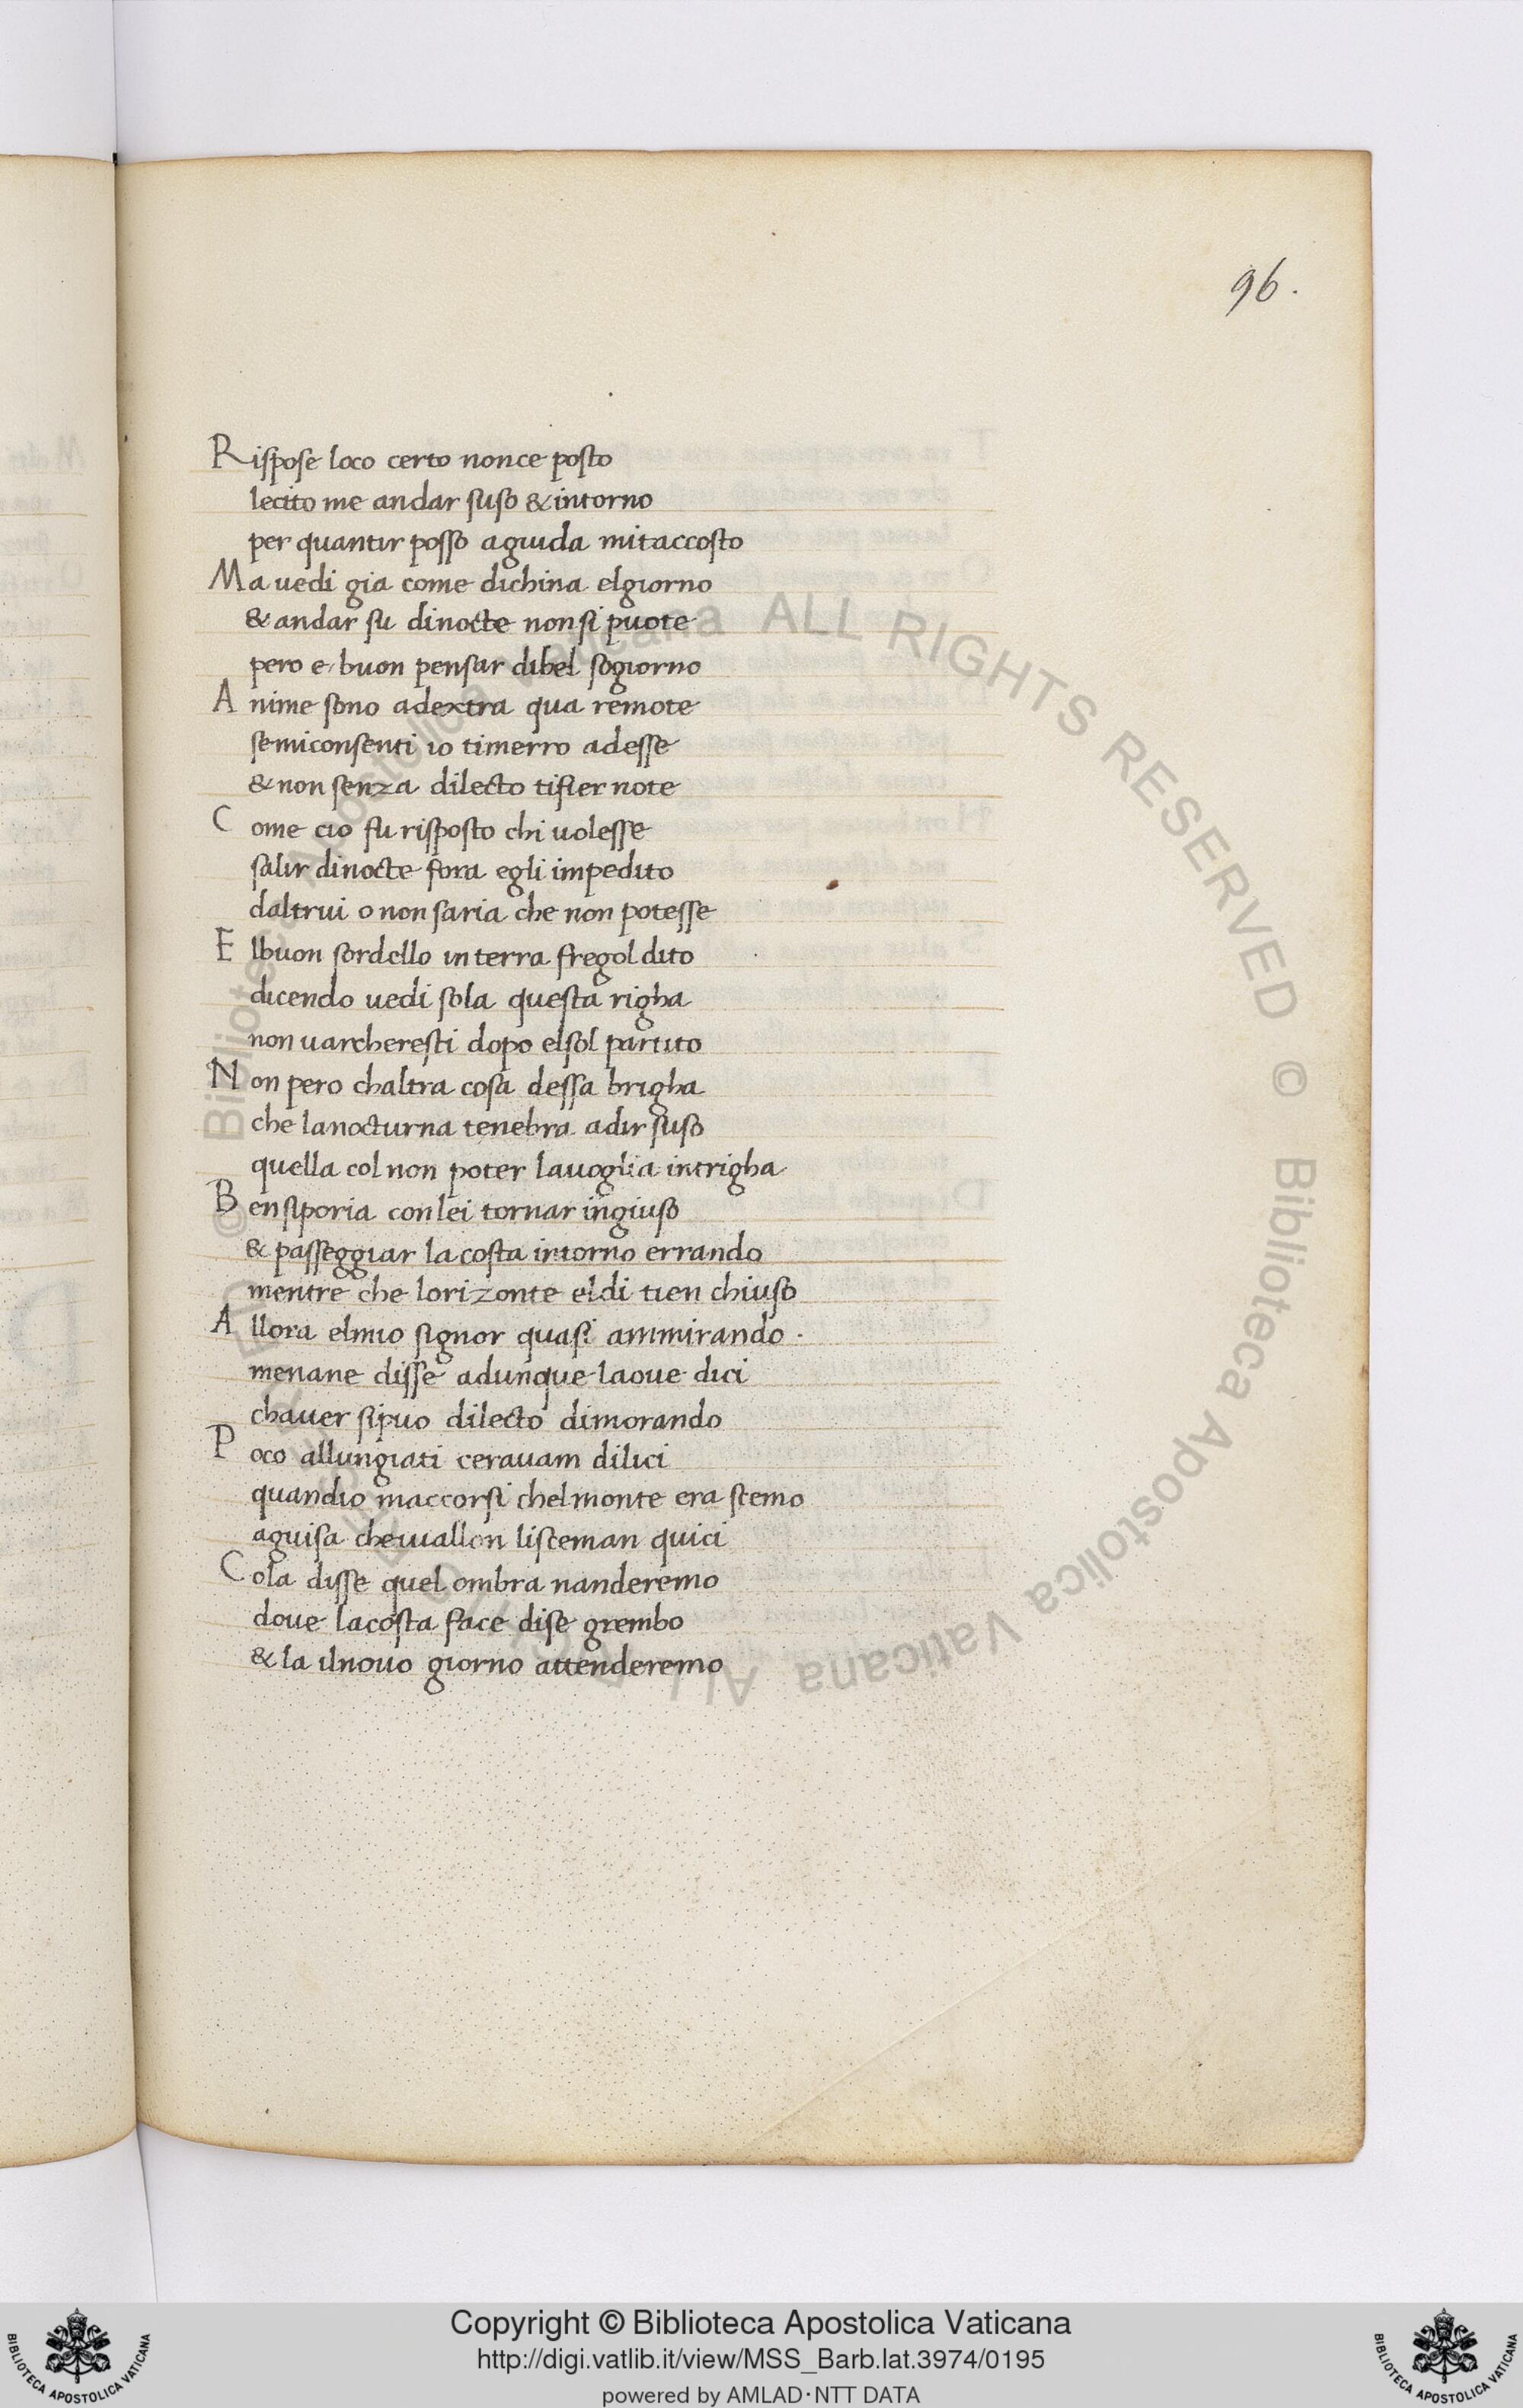 96.
Rispose loco certo nonce posto
lecito me andar suso & intorno
per quantir posso aguida mitaccosto
Ma uedi gia come dichina elgiorno
& andar su dinocte nonsi puote
pero e buon pensar dibel sogiorno
Anime sono adextra qua remote
semiconsenti io timerro adesse
& non senza dilecto tifier note
Come cio fu risposto chi uolesse
salir dinocte fora egli impedito
daltrui o non saria che non potesse
Elbuon sordello in terra fregol dito
dicendo uedi sola questa righa
non uarcheresti dopo elsol partito
Non pero chaltra cosa dessa brigha
che lanocturna tenebra adir suso
quella col non poter lauoglia intrigha
Bensiporia conlei tornar ingiuso
& passeggiar lacosta intorno errando
mentre che lorizonte eldi tien chiuso
Allora elmio signor quasi ammirando.
menane disse adunque laoue dici
chauer sipuo dilecto dimorando
Poco allungiati cerauam dilici
quandio maccorsi chelmonte era scemo
aguisa cheuallon lisceman quici
Cola disse quel ombra nanderemo
doue lacosta face dise grembo
& la ilnouo giorno attenderemo
© Biblioteca Apostolica Vaticana ALL RIGHTS RESERVED © Biblioteca Apostolica Vaticana ALL RIGHTS RESERVED
Copyright © Biblioteca Apostolica Vaticana
http://digi.vatlib.it/view/MSS_Barb.lat.3974/0195
powered by AMLAD·NTT DATA
BIBLIOTECA APOSTOLICA VATICANA
BIBLIOTECA APOSTOLICA VATICANA